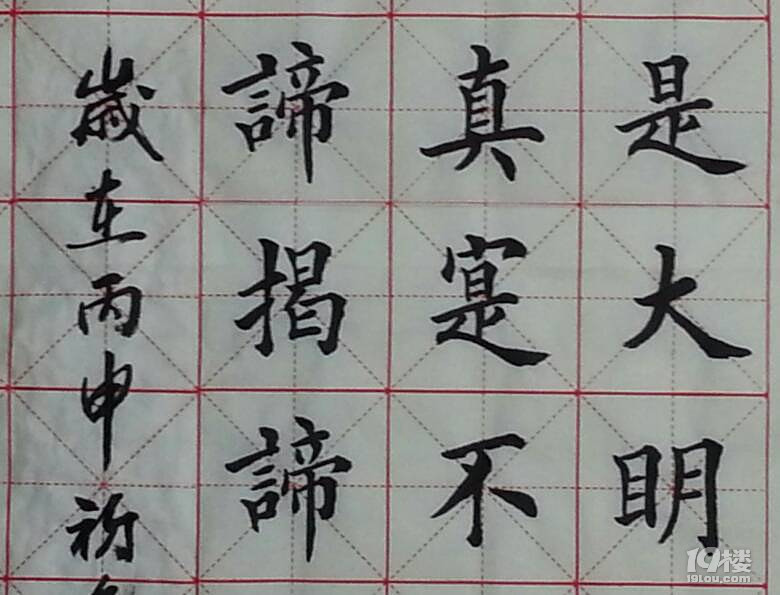 是大明
真寔不
諦揭諦
歲在丙申
19楼
19lou.com